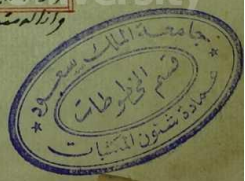 وازاله
جامعة الملك سعود
قسم المخطوطات
عمادة شئون المكتبات